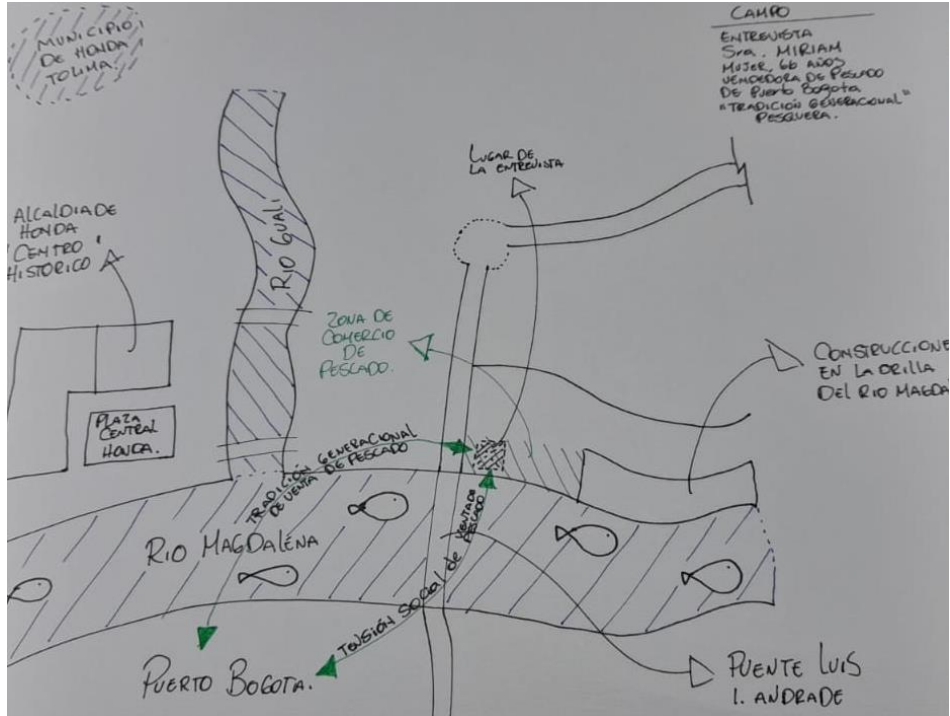 MUNICIPIO
DE HONDA
TOLIMA.
CAMPO
ENTREVISTA
Sra. MIRIAM
MUJER, 66 AÑOS
VENDEDORA DE PESCADO
DE Puerto Bogota
"TRADICIÓN GENERACIONAL"
PESQUERA.
LUGAR DE
LA ENTREVISTA
ALCALDIA DE
HONDA
"CENTRO
HISTORICO"
RIO GUALI
ZONA DE
COMERCIO
DE
PESCADO.
CONSTRUCCIONE
EN LA ORILLA
DEL RIO MAGDA
PLAZA
CENTRAL
HONDA.
TRADICIÓN GENERACIONAL
DE VENTA DE PESCADO
RIO MAGDALENA
TENSIÓN SOCIAL de VENTA DE
PESCADO
PUERTO BOGOTA.
PUENTE LUIS
I. ANDRADE